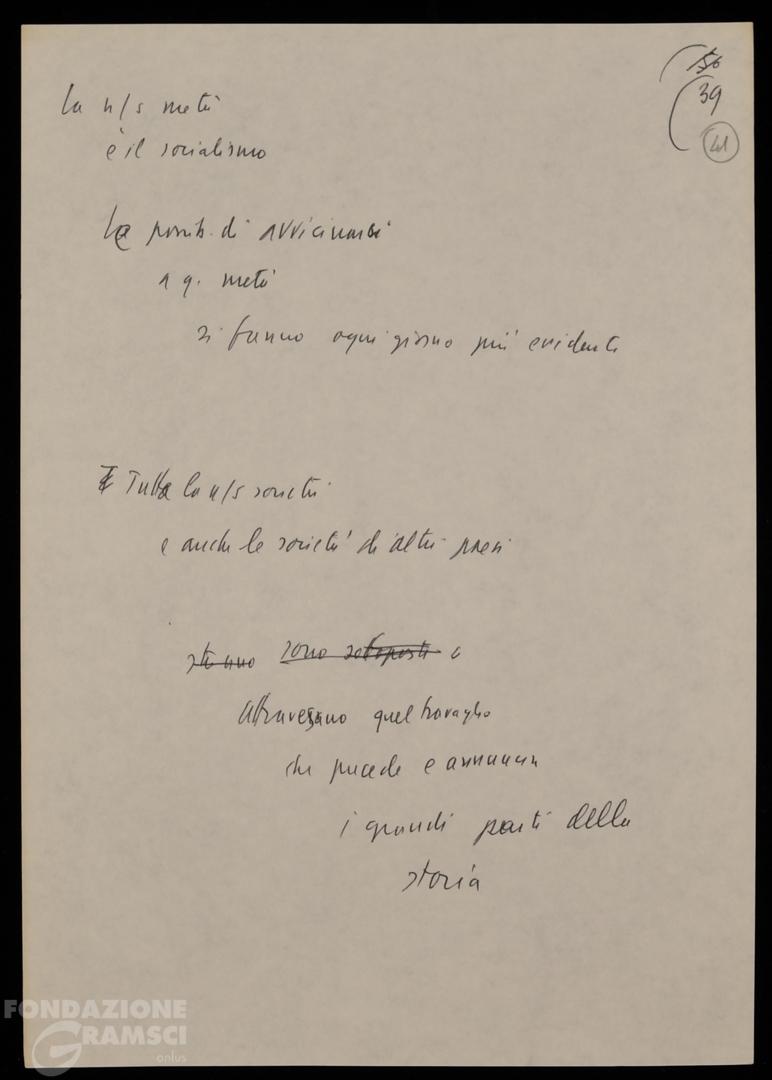 56
39
41
La n/s metà
è il socialismo
Le possib. di avvicinarsi
a q. metà
si fanno ogni giorno più evidenti
Tutta la n/s società
e anche le società di altri paesi
stanno sono sottoposti a
attraversano quel travaglio
che precede e annuncia
i grandi parti della
storia
FONDAZIONE
GRAMSCI
onlus